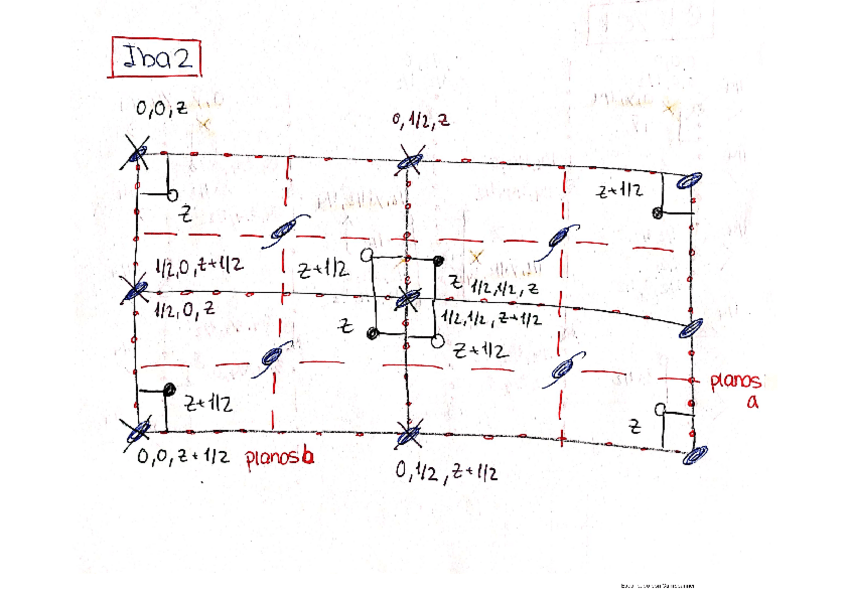 Iba2
0,0,z
0,1/2,z
z+1/2
z
1/2,0,z+1/2
z+1/2
z
1/2,1/2,z
1/2,0,z
1/2,1/2,z+1/2
z
z+1/2
planos
a
z+1/2
z
0,0,z+1/2
planos b
0,1/2,z+1/2